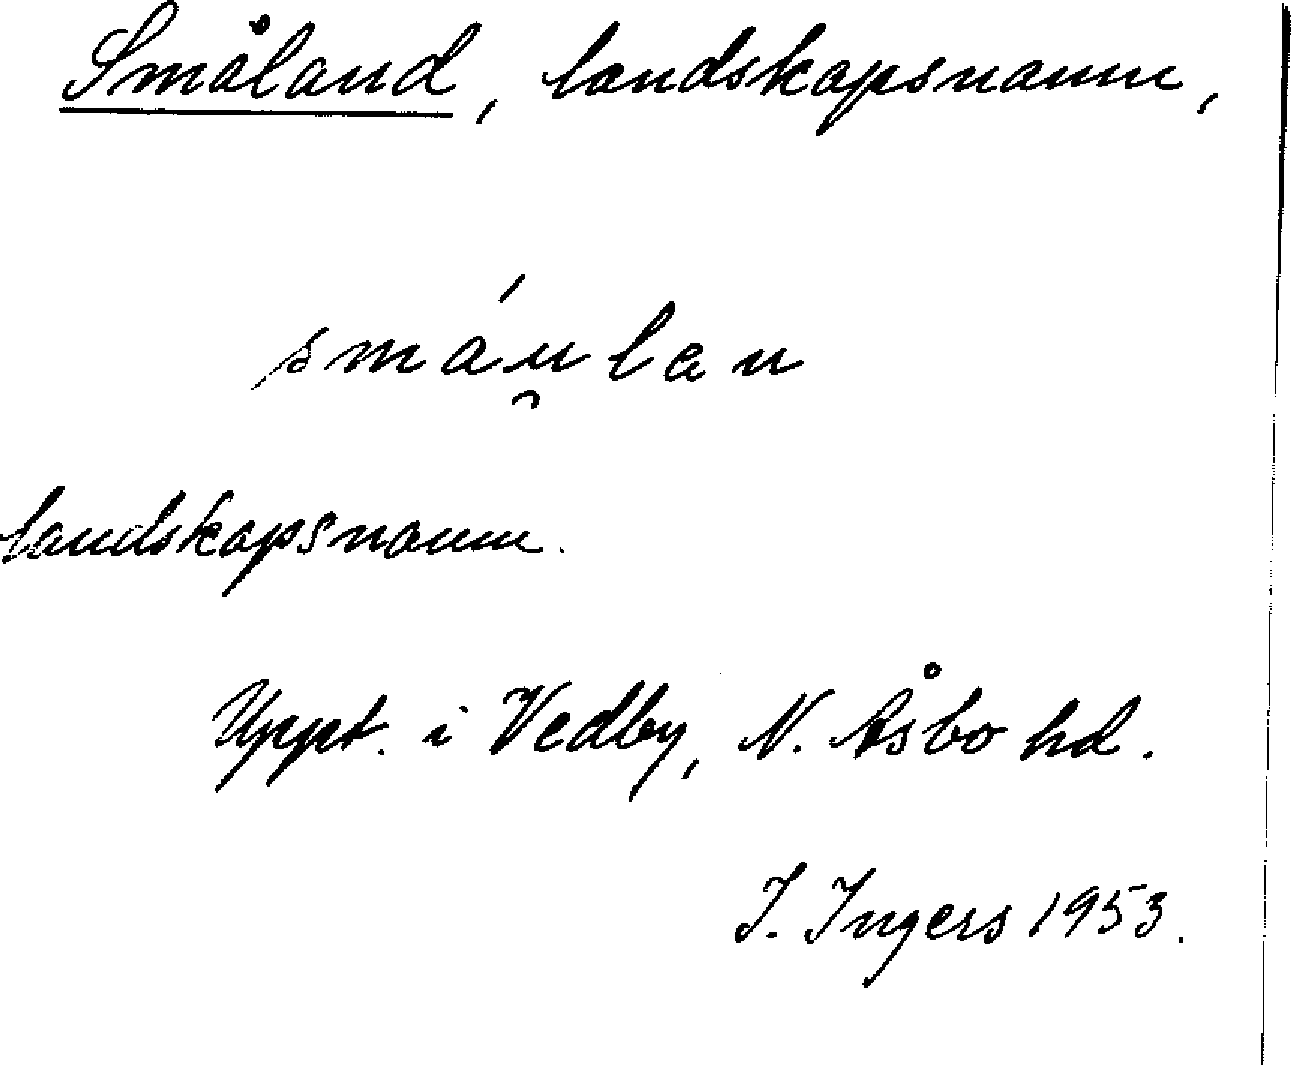 Småland, landskapsnamn,
smáu̯lan
landskapsnamn.
Uppt. i Vedby, N. Åsbo hd.
I. Ingers 1953.